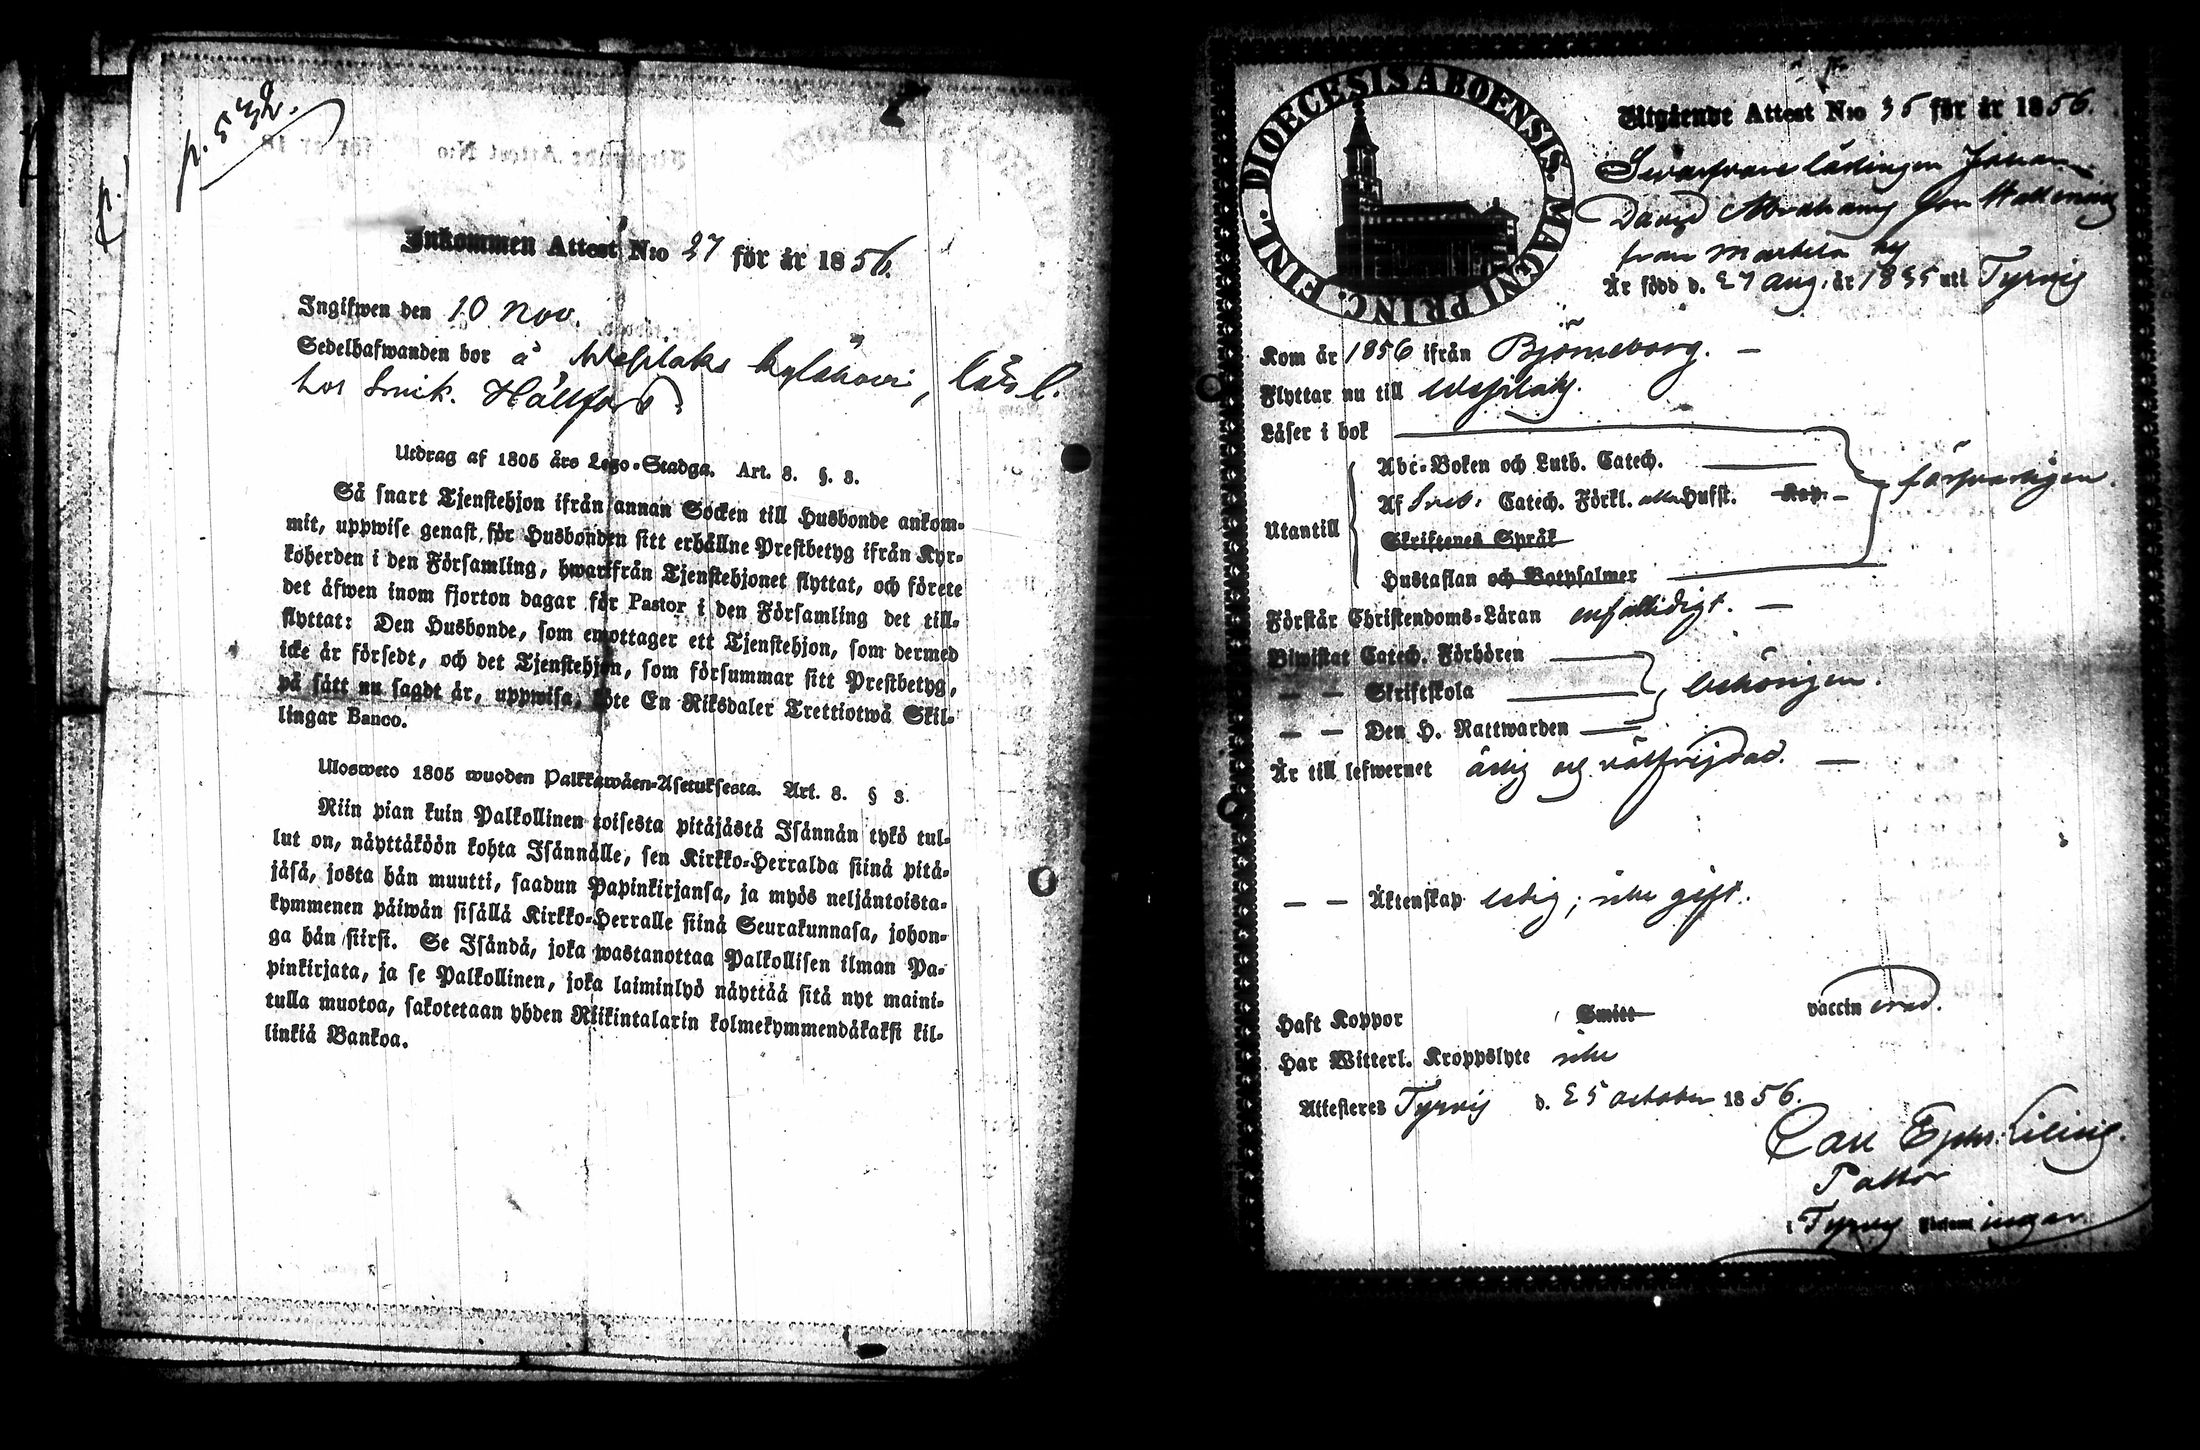 p. 532.
Inkommen Attest N:o 27 för år 1856.
Ingifwen den 10 Nov.
Sedelhafwanden bor å Wesilaks kylakowi, lärl.
hos Smik. Hällfors.
Utdrag af 1805 års Lego-Stadga. Art. 8. §. 3.
Så snart Tjenstehjon ifrån annan Socken till Husbonde ankom-
mit, uppwise genast för Husbonden sitt erhållne Prestbetyg ifrån Kyr-
koherden i den Församling, hwarifrån Tjenstehjonet flyttat, och förete
det äfwen inom fjorton dagar för Pastor i den Församling det till-
flyttat: Den Husbonde, som emottager ett Tjenstehjon, som dermed
icke är försedt, och det Tjenstehjon, som försummar sitt Prestbetyg,
på sätt nu sagdt är, uppwisa, böte En Riksdaler Trettiotwå Skil-
lingar Banco.
Ulosweto 1805 wuoden Palkkawäen-Asetuksesta. Art. 8. § 3.
Niin pian kuin Palkollinen toisesta pitäjästä Isännän tykö tul-
lut on, näyttäköön kohta Isännälle, sen Kirkko-Herralda siinä pitä-
jäsä, josta hän muutti, saadun Papinkirjansa, ja myös neljäntoista-
kymmenen päiwän sisällä Kirkko-Herralle siinä Seurakunnasa, johon-
ga hän siirsi. Se Isändä, joka wastanottaa Palkollisen ilman Pa-
pinkirjata, ja se Palkollinen, joka laiminlyö näyttää sitä nyt maini-
tulla muotoa, sakotetaan yhden Riikintalarin kolmekymmendäkaksi kil-
linkiä Bankoa.
DIOECESIS ABOENSIS. MAGNI PRINC. FINL.
Utgående Attest N:o 35 för år 1856.
Swarfware lärlingen Johan
David Abrahams Son Hallman
från Marttila by
Är född d. 27 Aug. år 1835 uti Tyrvis
Kom år 1856 ifrån Björneborg. —
Flyttar nu till Wesilaks.
Läser i bok
Abc-Boken och Luth. Catech.
försvarligen.
Af Sveb. Catech. Förkl. alla Hufst. Kap. —
Utantill
Skriftenes Språk
Hustaflan och Botpsalmer
Förstår Christendoms-Läran enfalldigt. —
Biwistat Catech. Förhören
— — Skriftskola
behörigen.
— — Den H. Nattwarden
Är till lefwernet ärlig och välfrejdad. —
— — Äktenskap ledig; icke gift.
Haft Koppor Smitt vaccinerad.
Har Witterl. Kroppslyte icke
Attesteres Tyrvis d. 25 October 1856.
Carl Ephr. Lilius.
Pastor
i Tyrvis Församlingar.